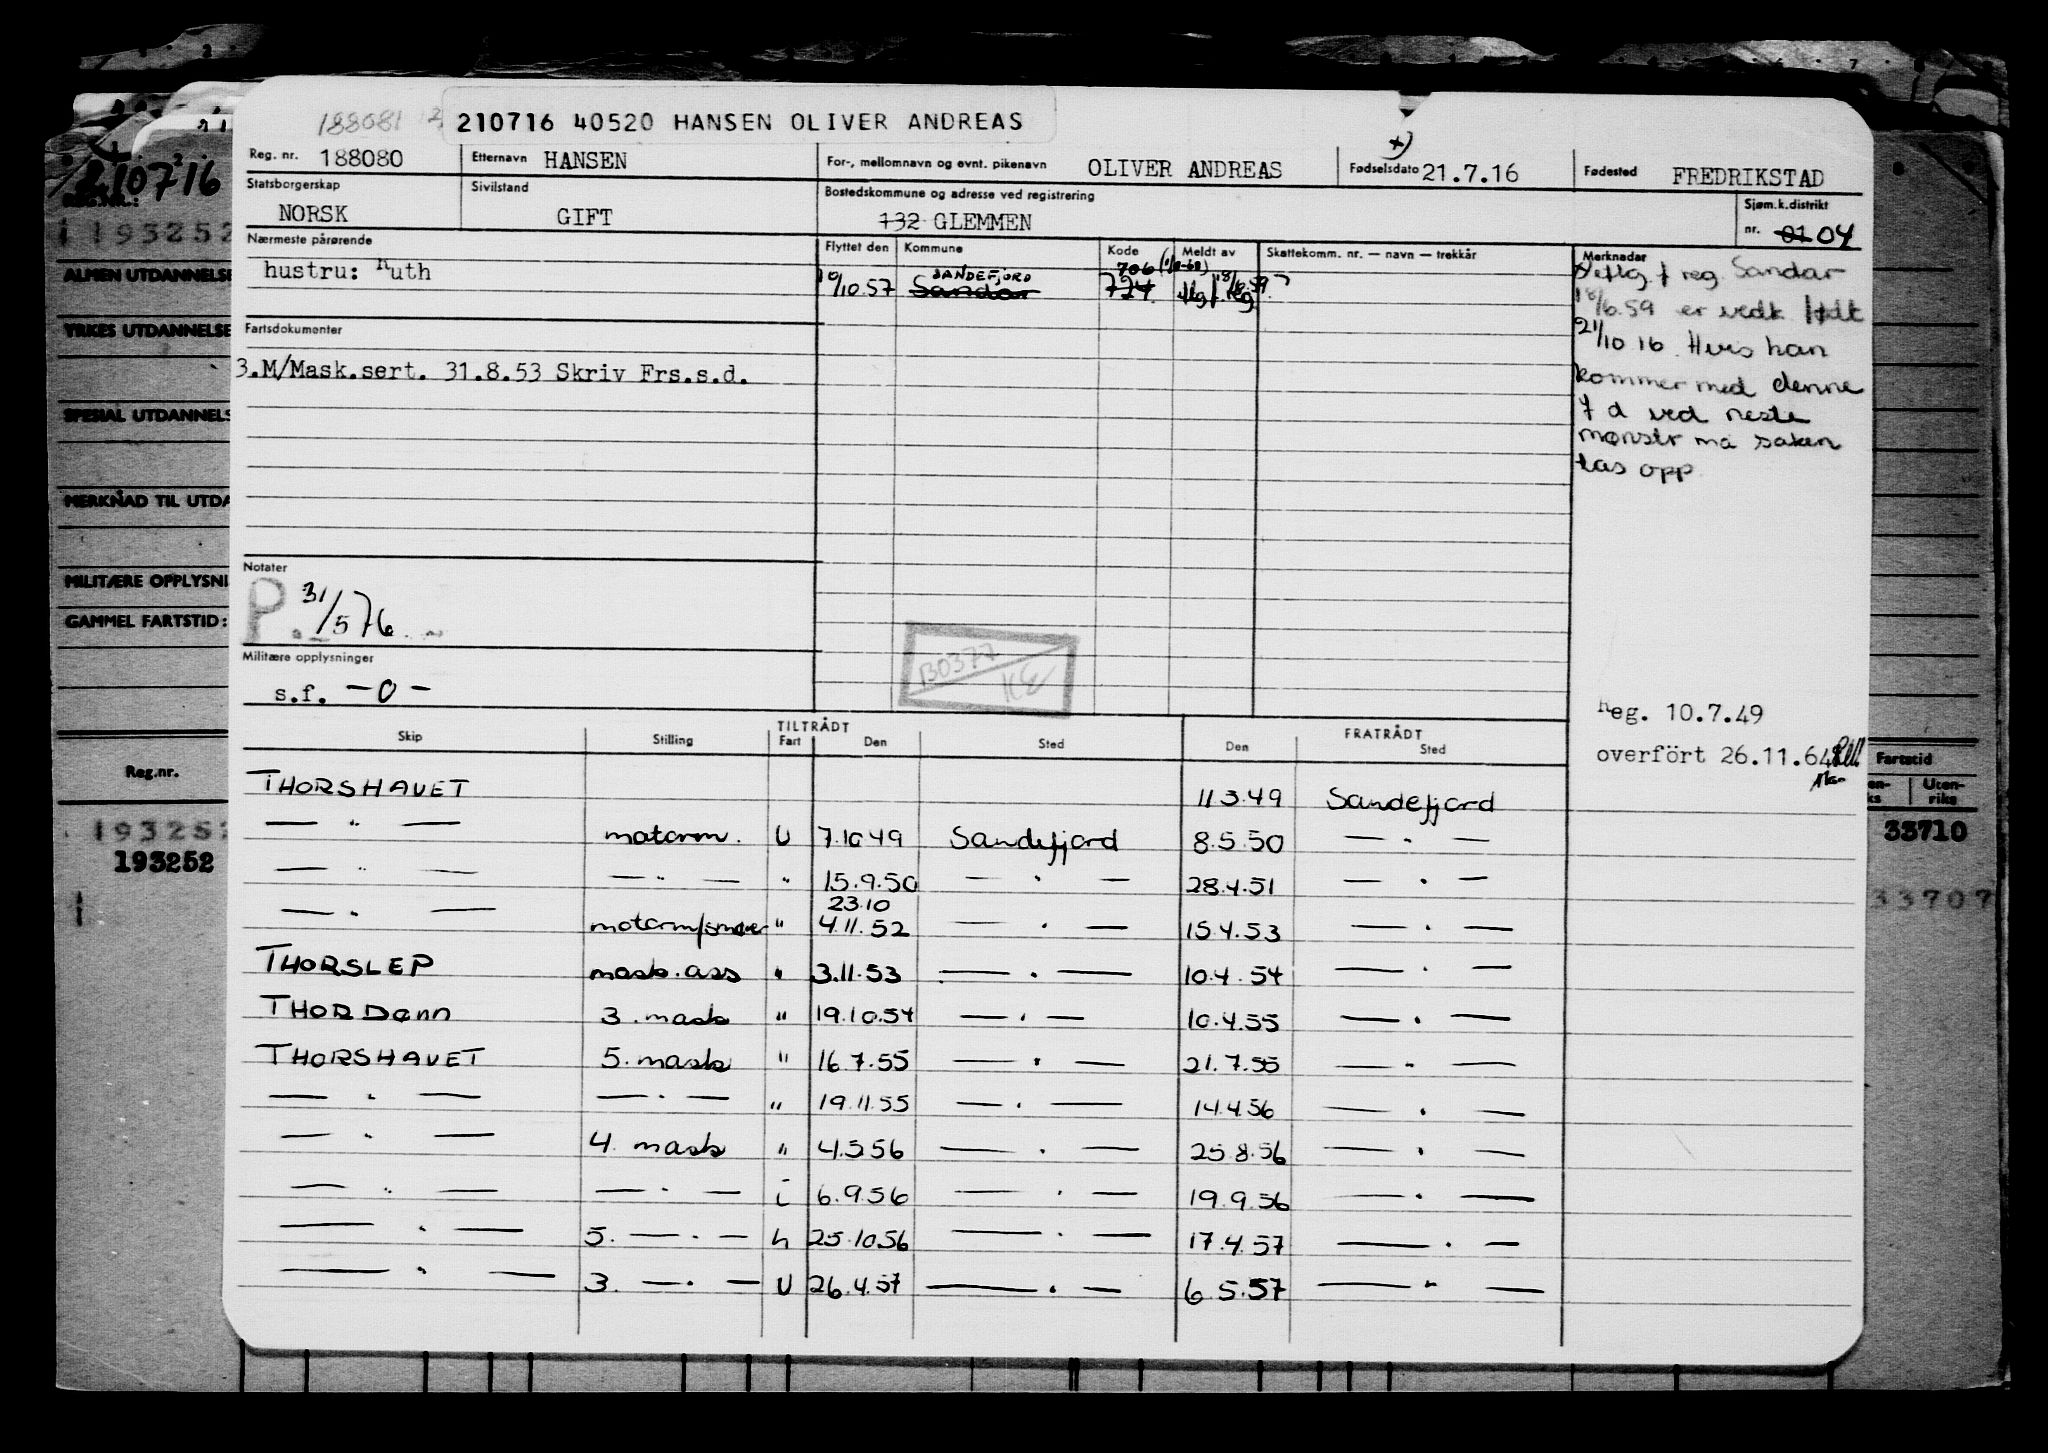 188081
210716 40520 HANSEN OLIVER ANDREAS
Reg. nr. 188080 Etternavn HANSEN For-, mellomnavn og evnt. pikenavn OLIVER ANDREAS Fødselsdato 21.7.16 +) Fødested FREDRIKSTAD
Statsborgerskap NORSK Sivilstand GIFT Bostedskommune og adresse ved registrering 132 GLEMMEN Sjøm.k.distrikt nr. 01 04
Nærmeste pårørende Flyttet den Kommune Kode Meldt av Skattekomm. nr. — navn — trekkår Merknader
hustru: Ruth
10/10.57 SANDEFJORD Sandar 706 (1/1-68) 724 flg f. reg 18/6.59
+) Iflg. f reg. Sandar
18/6.59 er vedk født
21/10 16. Hvis han
kommer med denne
f d ved neste
mønstr må saken
tas opp
Fartsdokumenter
3.M/Mask.sert. 31.8.53 Skriv Frs.s.d.
Notater
P. 31/5 76.
Militære opplysninger
s.f. - 0 -
B0377
Reg. 10.7.49
overfört 26.11.64
TILTRÅDT FRATRÅDT
Skip Stilling Fart Den Sted Den Sted
THORSHAVET 11.3.49 Sandefjord
— " — motorm. U 7.10 49 Sandefjord 8.5.50 — " —
— " — — " — " 15.9.50 — " — 28.4.51 — " —
23.10
— " — motorm/smører " 4.11.52 — " — 15.4.53 — " —
THORSLEP mask.ass " 3.11.53 — " — 10.4.54 — " —
THORDønn 3. mask " 19.10.54 — " — 10.4.55 — " —
THORSHAVET 5. mask " 16.7.55 — " — 21.7.55 — " —
— " — — " — " 19.11.55 — " — 14.4.56 — " —
— " — 4. mask " 4.5.56 — " — 25.8.56 — " —
— " — — " — i 6.9.56 — " — 19.9.56 — " —
— " — 5. — " — h 25.10.56 — " — 17.4.57 — " —
— " — 3. — " — U 26.4.57 — " — 6.5.57 — " —
210716
REG.NR.:
193252
ALMEN UTDANNELSE
YRKES UTDANNELSE
SPESIAL UTDANNELS
MERKNAD TIL UTDA
MILITÆRE OPPLYSNI
GAMMEL FARTSTID:
Reg.nr.
193252
193252
Fartstid
Uten-
riks
33710
33707